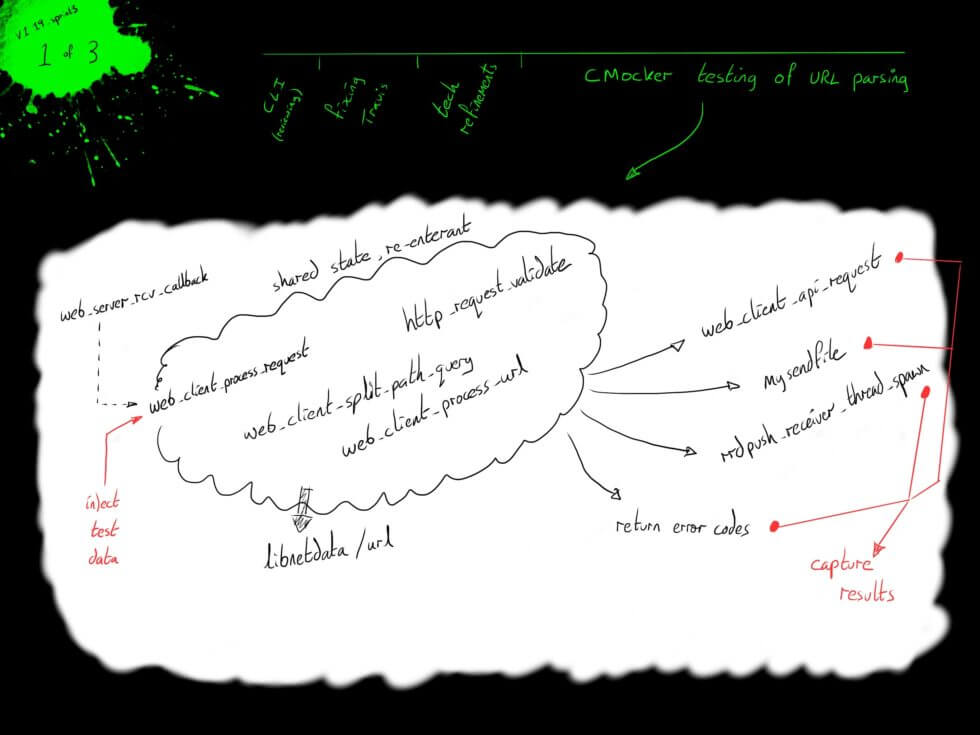 V1.19 sprints
1 of 3
CLI
(reviewing)
fixing
Travis
tech
refinements
CMocker testing of URL parsing
shared state, re-enterant
web_server_rcv_callback
http_request_validate
web_client_api_request
web_client_process_request
mysendfile
web_client_split_path_query
web_client_process_url
rrdpush_receiver_thread_spawn
inject
test
data
return error codes
libnetdata/url
capture
results